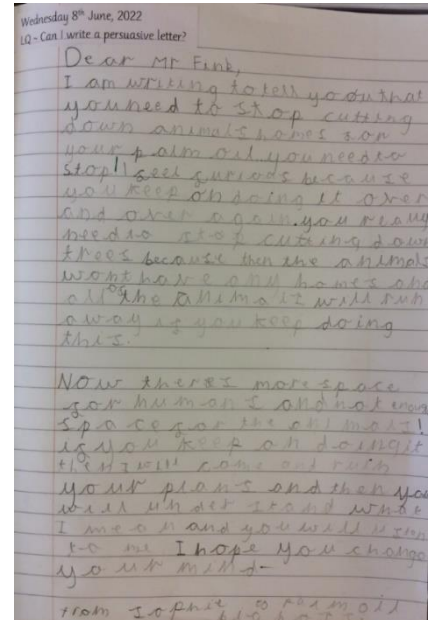 Wednesday 8th June, 2022
LQ - Can I write a persuasive letter?
Dear Mr Fink,
I am writing to tell you that
you need to stop cutting
down animals homes for
your palm oil. you need to
stop!! I feel furious because
you keep on doing it over
and over again. you really
need to stop cutting down
trees because then the animals
wont have any homes and
all of the animals will run
away if you keep doing
this.
Now theres more space
for humans and not enough
space for the animals!
if you keep on doing it
then I will come and ruin
your plans and then you
will under stand what
I mean and you will listen
to me I hope you change
your mind-
from Sophie